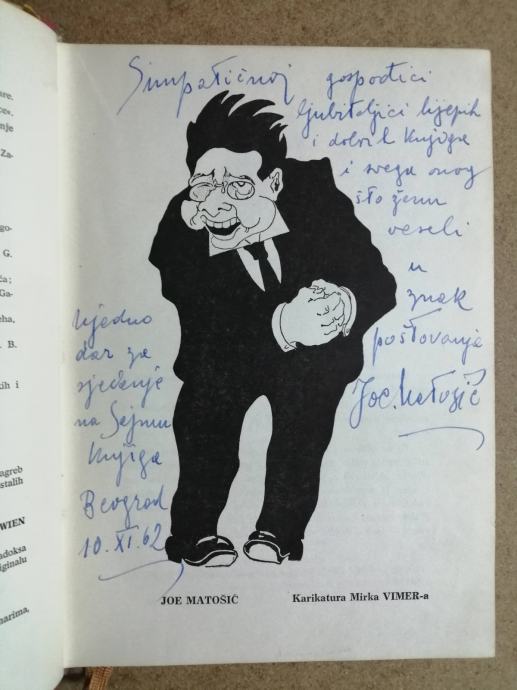 Simpatičnoj gospođici
ljubiteljici lijepih
i dobrih knjiga
i svega onog
što ženu
veseli
u
znak
poštovanja
Joe Matošić
Ujedno
dar za
sjećanje
na Sajmu
Knjiga
Beograd
10. XI. 62
JOE MATOŠIĆ
Karikatura Mirka VIMER-a
G.
Ga-
B.
i
WIEN